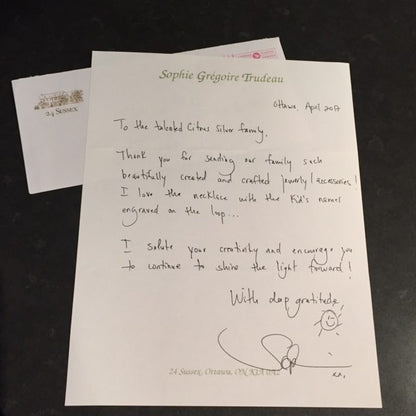 Sophie Grégoire Trudeau
24 SUSSEX
Ottawa, April 2017
To the talented Citrus Silver family,
Thank you for sending our family such
beautifully created and crafted jewerly/accessories!
I love the necklace with the kid's names
engraved on the loop...
I salute your creativity and encourage you
to continue to shine the light forward!
With deep gratitude,
xx.
24 Sussex, Ottawa, ON K1A 0A2